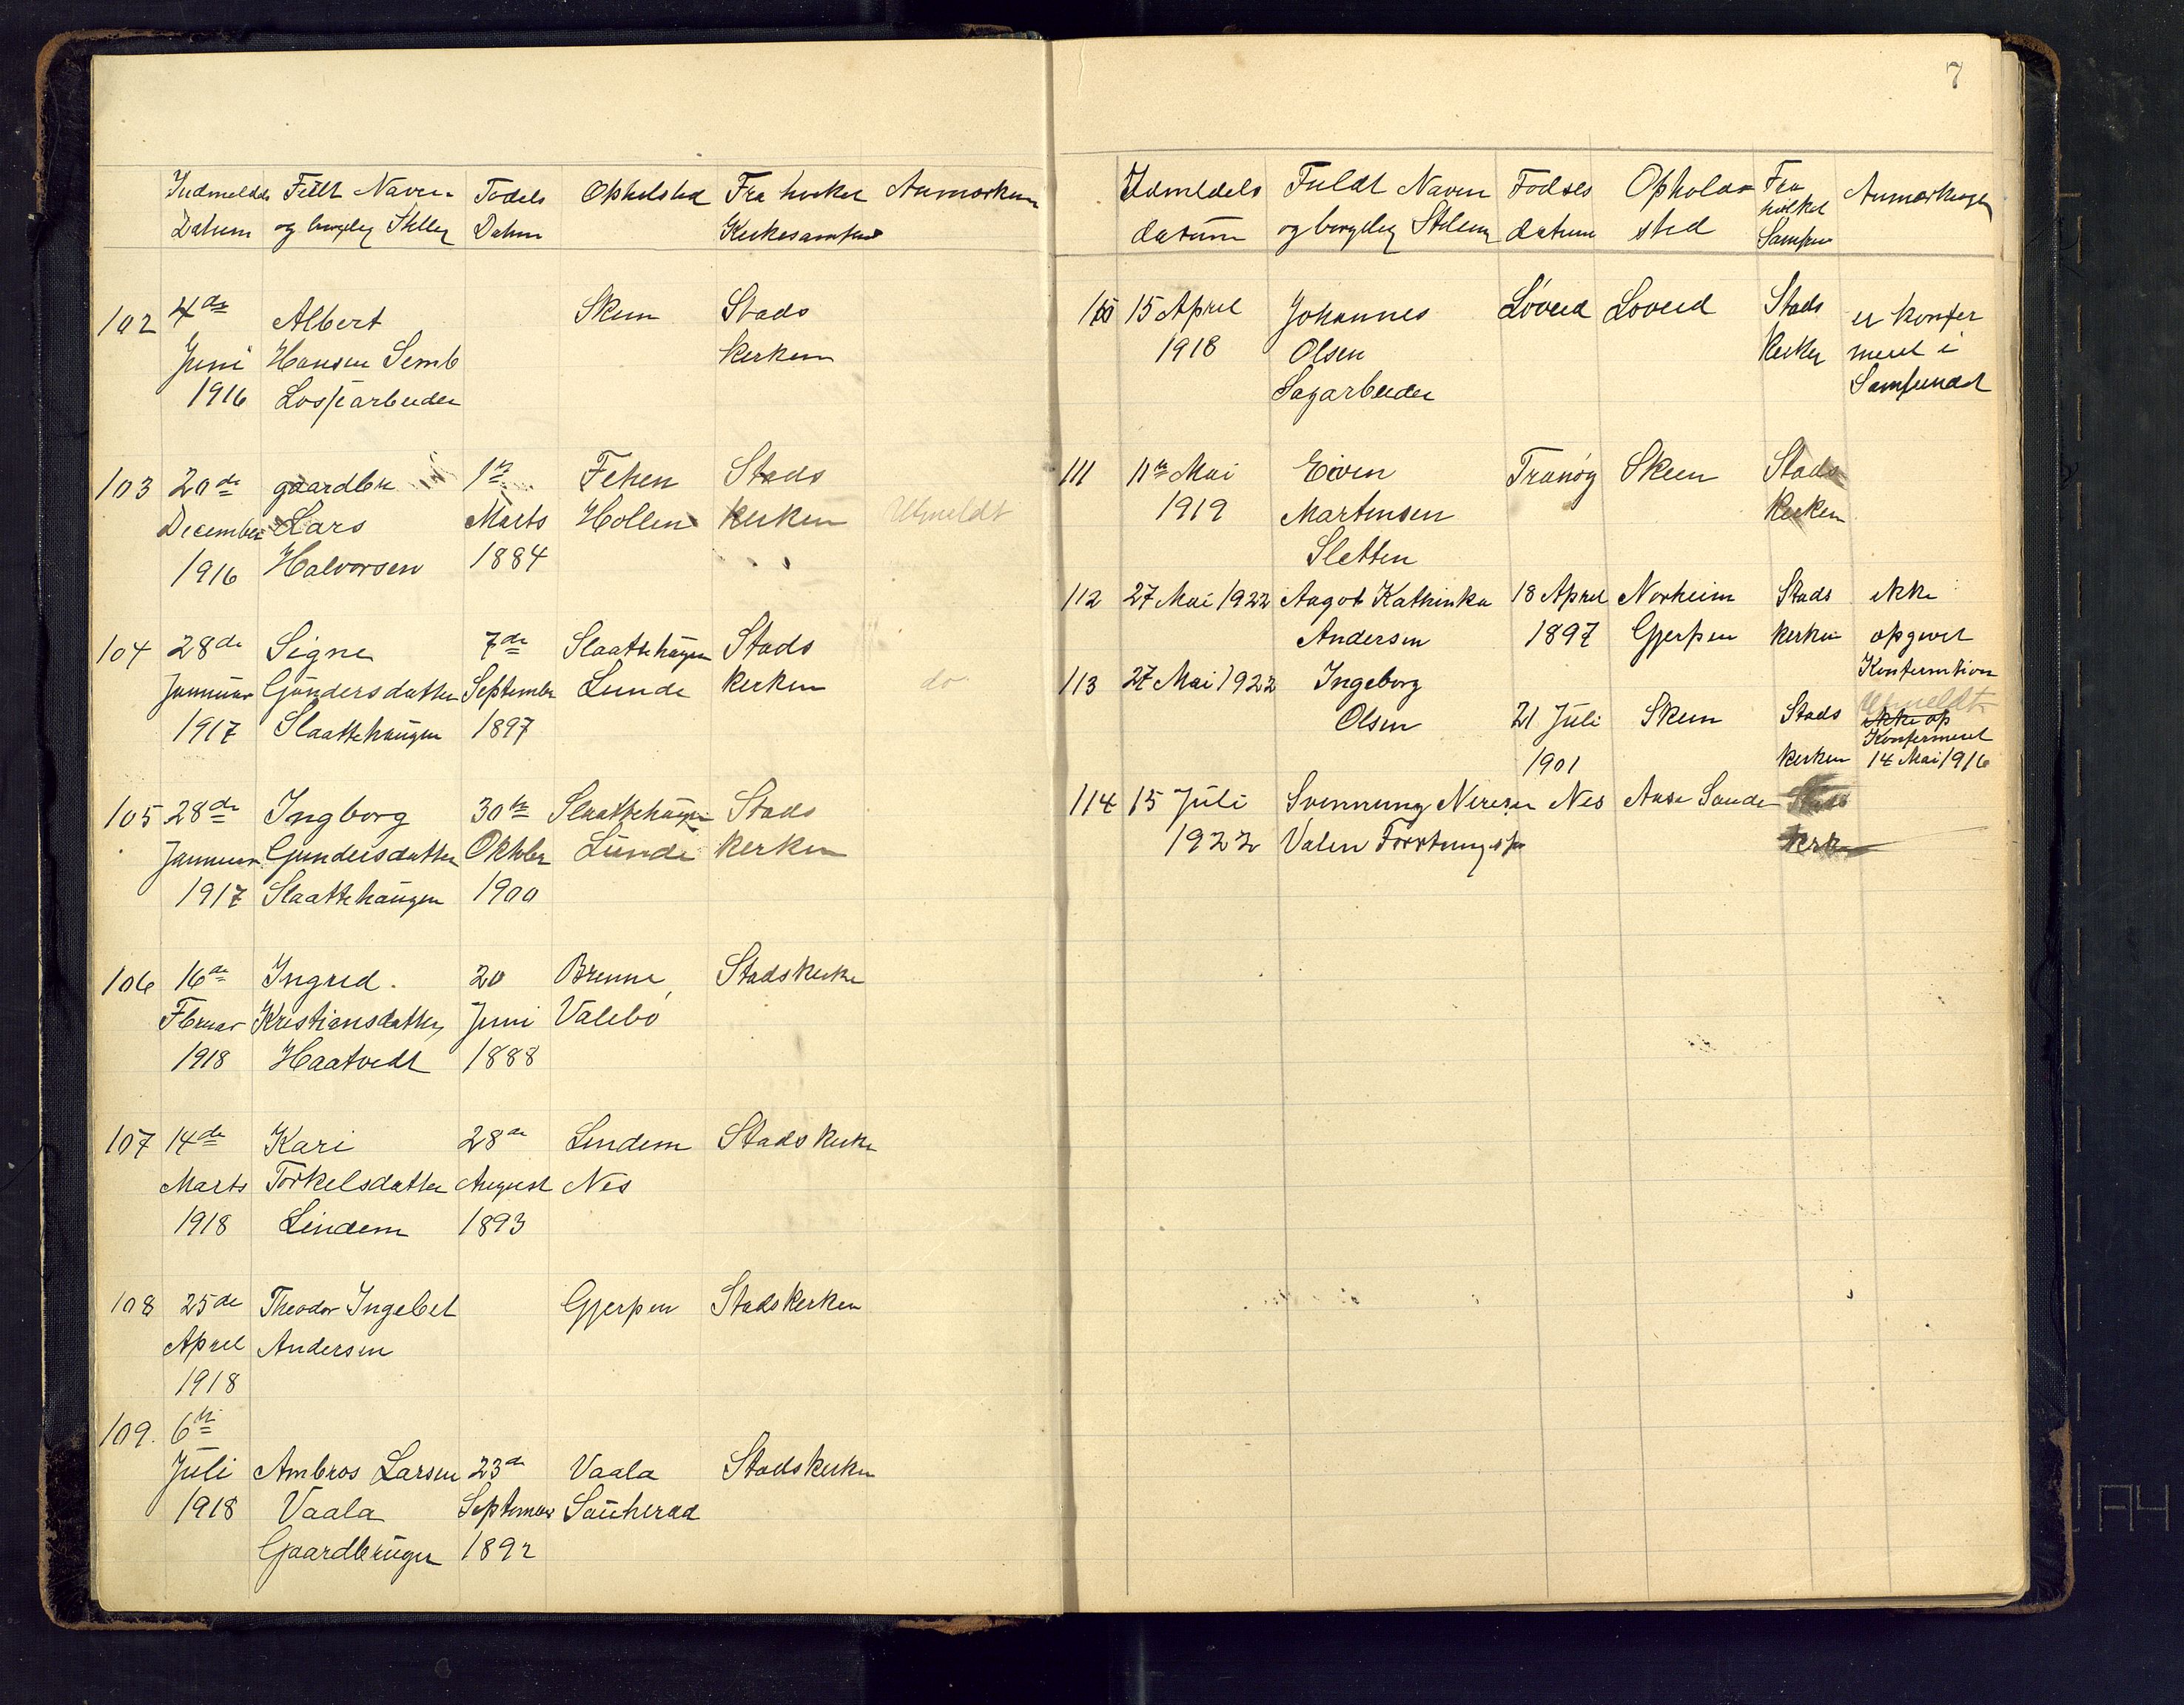 Indmeldels Fuldt Navn Fodsels Opholssted Fra hvilket Anmærkning
Datum og borgelig Stilling Datum Kirkesamfund
102 4de Albert Skien Stads
Juni Hansen Semb Kirken
1916 Lossearbeider
103 20de gaardbr 1te Fehen Stads
December Lars Marts Hollen Kirken Utmeldt
1916 Halvorsen 1884
104 28de Signe 7de Slaattehaugen Stads
Januar Gundersdatter September Lunde Kirken do.
1917 Slaattehaugen 1897
105 28de Ingborg 30te Slaattehaugen Stads
Januar Gundersdatter Oktober Lunde Kirken
1917 Slaattehaugen 1900
106 16de Ingrid. 20 Brenne, Stadskirke
Februar Kristiansdatter Juni Valebø
1918 Haatvedt 1888
107 14de Kari 28de Lindem Stadskirke
Marts Torkelsdatter August Nes
1918 Lindem 1893
108 25de Theodor Ingebret Gjerpen Stadskirken
April Andersen
1918
109. 6te
Juli Ambros Larsen 23de Vaala Stadskirken
1918 Vaala September Sauherad
Gaardbruger 1892
7
Fuldt Navn Fodses Opholds Fra Anmærkninger
datum og borgelig Stilling datum sted hvilket
Samfun
15 April Johannes Løveid Loveid Stads er konfer
1918 Olsen Kirken meret i
Sagarbeider Samfundet
111 11te Mai Even Tranøy Skien Stads
1919 Martinsen Kirken
Sletten
112 27 Mai 1922 Aagot Kathinka 18 April Norheim Stads ikke
Andersen 1897 Gjerpen kirken opgivet
Konfermtion
113 27 Mai 1922 Ingeborg Utmeldt
Olsen 21 Juli Skien Stads ikke op
Konfermeret
1901 kirken 14 Mai 1916
114 15 Juli Svennung Neresen Nes Aase Saude Stads
1922 Valen Forstningsfor Kirk
A4